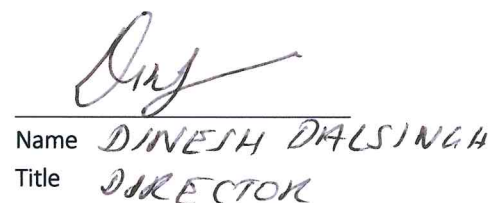 Name DINESH DALSINGH
Title DIRECTOR